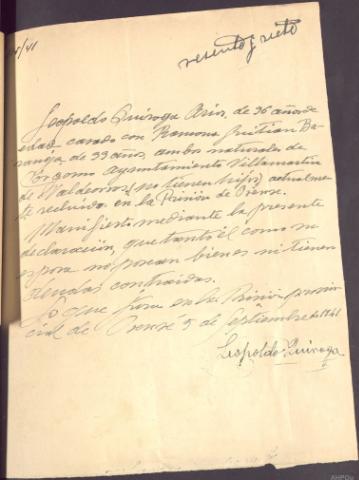 /41
Leopoldo Quiroga Arias, de 36 años de
edad casado con Ramona Quitian Ba-
ranga, de 33 años, ambos naturales de
Ayuntamiento Villamartin
de Valdeorras, (no tienen hijos) actualmen-
te recluido en la Prisión de Orense.
Manifiesto mediante la presente
declaración, que tanto él como su
esposa no poseen bienes ni tienen
deudas contraidas.
Lo que firma en la Prisión provin
cial de Orense 5 de Septiembre de 1941
Leopoldo Quiroga